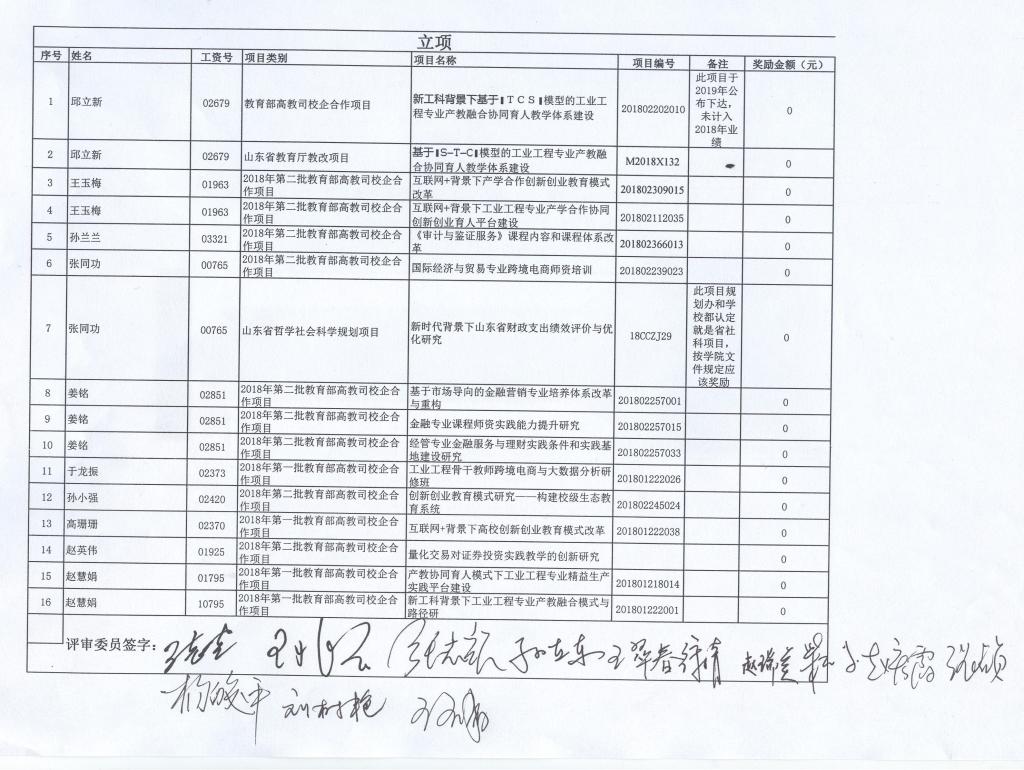 立项
序号 姓名 工资号 项目类别 项目名称 项目编号 备注 奖励金额（元）
1 邱立新 02679 教育部高教司校企合作项目 新工科背景下基于TCS模型的工业工程专业产教融合协同育人教学体系建设 201802202010 此项目于2019年公布下达，未计入2018年业绩 0
2 邱立新 02679 山东省教育厅教改项目 基于S-T-C模型的工业工程专业产教融合协同育人教学体系建设 M2018X132 0
3 王玉梅 01963 2018年第二批教育部高教司校企合作项目 互联网+背景下产学合作创新创业教育模式改革 201802309015 0
4 王玉梅 01963 2018年第二批教育部高教司校企合作项目 互联网+背景下工业工程专业产学合作协同创新创业育人平台建设 201802112035 0
5 孙兰兰 03321 2018年第二批教育部高教司校企合作项目 《审计与鉴证服务》课程内容和课程体系改革 201802366013 0
6 张同功 00765 2018年第二批教育部高教司校企合作项目 国际经济与贸易专业跨境电商师资培训 201802239023 0
7 张同功 00765 山东省哲学社会科学规划项目 新时代背景下山东省财政支出绩效评价与优化研究 18CCZJ29 此项目规划办和学校都认定就是省社科项目，按学院文件规定应该奖励 0
8 姜铭 02851 2018年第二批教育部高教司校企合作项目 基于市场导向的金融营销专业培养体系改革与重构 201802257001 0
9 姜铭 02851 2018年第二批教育部高教司校企合作项目 金融专业课程师资实践能力提升研究 201802257015 0
10 姜铭 02851 2018年第二批教育部高教司校企合作项目 经管专业金融服务与理财实践条件和实践基地建设研究 201802257033 0
11 于龙振 02373 2018年第一批教育部高教司校企合作项目 工业工程骨干教师跨境电商与大数据分析研修班 201801222026 0
12 孙小强 02420 2018年第二批教育部高教司校企合作项目 创新创业教育模式研究——构建校级生态教育系统 201802245024 0
13 高珊珊 02370 2018年第一批教育部高教司校企合作项目 互联网+背景下高校创新创业教育模式改革 201801222038 0
14 赵英伟 01925 2018年第二批教育部高教司校企合作项目 量化交易对证券投资实践教学的创新研究 0
15 赵慧娟 01795 2018年第一批教育部高教司校企合作项目 产教协同育人模式下工业工程专业精益生产实践平台建设 201801218014 0
16 赵慧娟 10795 2018年第一批教育部高教司校企合作项目 新工科背景下工业工程专业产教融合模式与路径研 201801222001 0
评审委员签字：
刘树艳